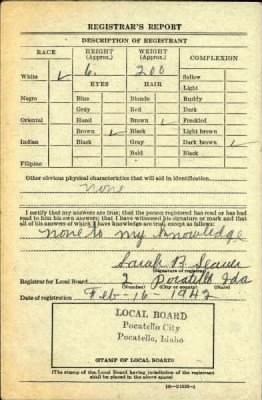 REGISTRAR'S REPORT
DESCRIPTION OF REGISTRANT
RACE HEIGHT (Approx.) WEIGHT (Approx.) COMPLEXION
White ✓ 6. 200 Sallow
EYES HAIR Light
Negro Blue Blonde Ruddy
Gray Red Dark
Oriental Hazel Brown ✓ Freckled
Brown ✓ Black Light brown
Indian Black Gray Dark brown ✓
Bald Black
Filipino
Other obvious physical characteristics that will aid in identification
none
I certify that my answers are true; that the person registered has read or has had
read to him his own answers; that I have witnessed his signature or mark and that
all of his answers of which I have knowledge are true, except as follows:
none to my knowledge
Sarah B.
(Signature of registrar)
Registrar for Local Board 2 Pocatello Ida
(Number) (City or county) (State)
Date of registration Feb-16-1942
LOCAL BOARD
Pocatello City
Pocatello, Idaho
(STAMP OF LOCAL BOARD)
(The stamp of the Local Board having jurisdiction of the registrant
shall be placed in the above space)